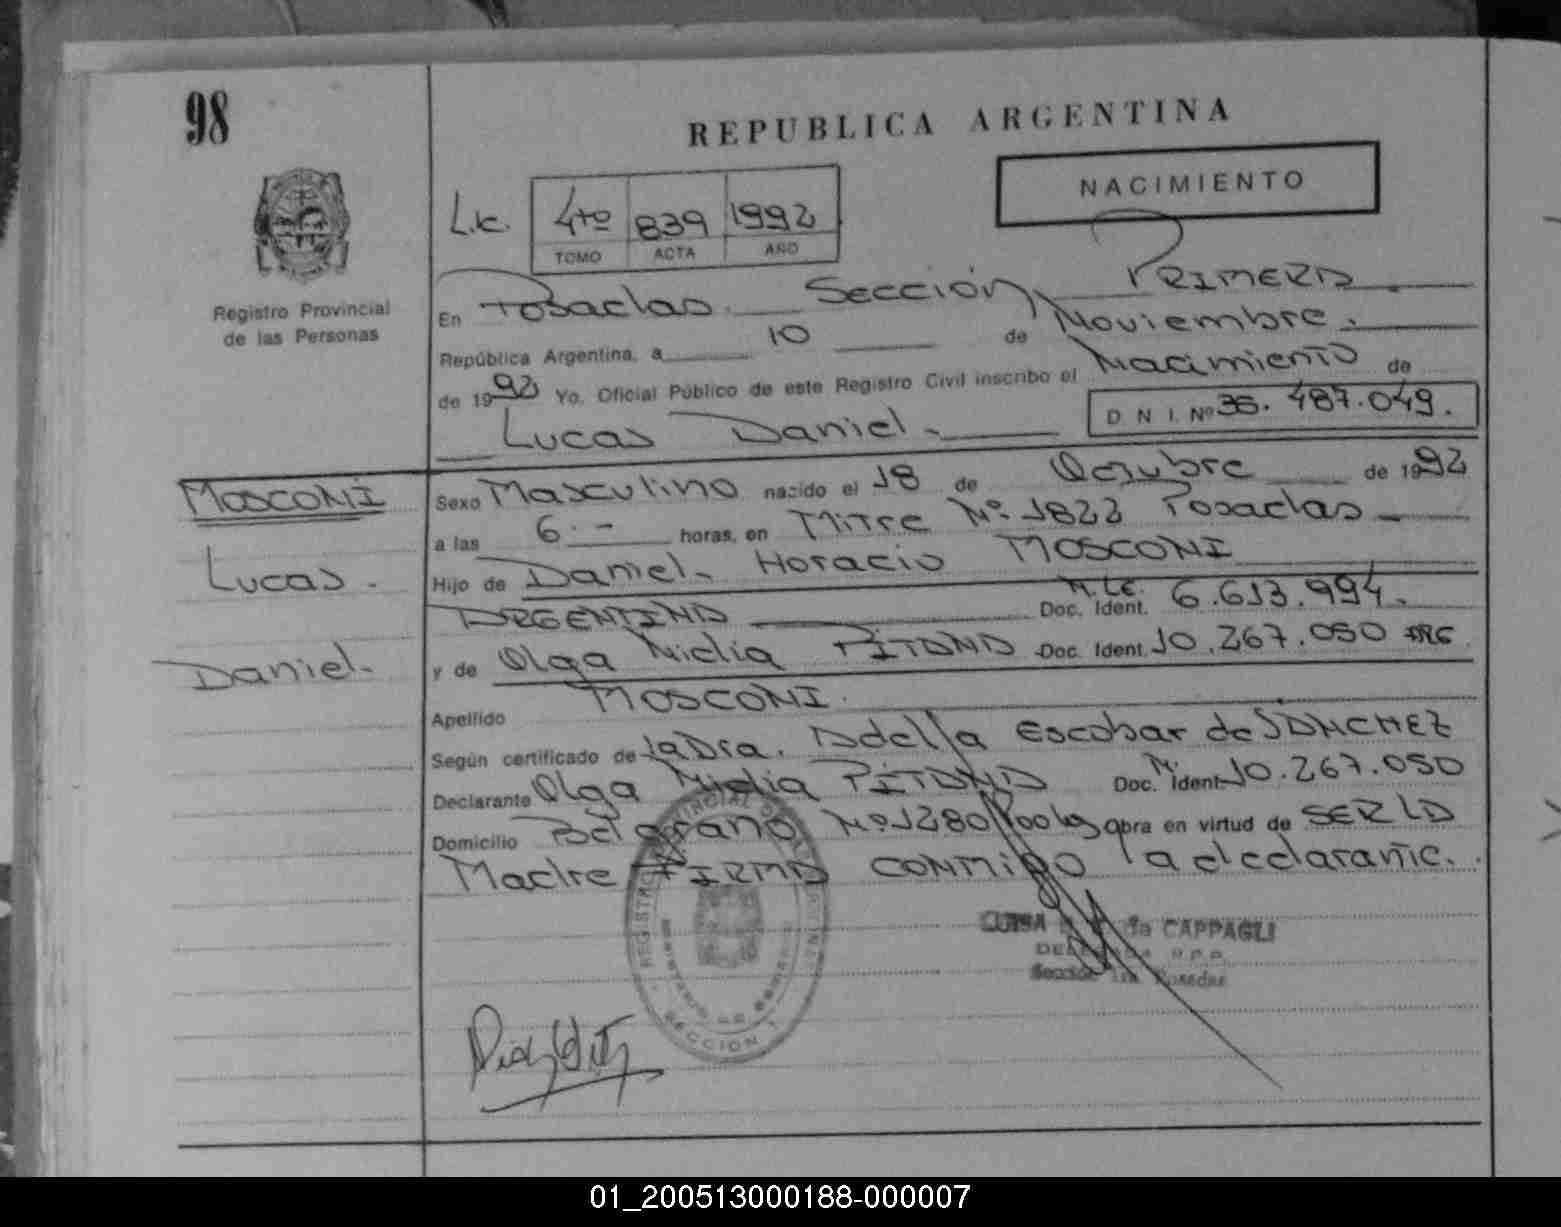 98
REPUBLICA ARGENTINA
NACIMIENTO
Registro Provincial
de las Personas
Lic. 4to 839 1992
TOMO ACTA AÑO
En Posadas. Sección PRIMERA
República Argentina, a 10 de Noviembre.
de 1992 Yo, Oficial Público de este Registro Civil inscribo el Nacimiento de
Lucas Daniel. D N I. Nº 36.487.049.
MOSCONI
Lucas.
Daniel.
Sexo Masculino nacido el 18 de Octubre de 1992
a las 6.- horas, en Mitre Nº 1822 Posadas
Hijo de Daniel Horacio MOSCONI
ARGENTINO Doc. Ident. M. LE. 6.613.994.
y de Olga Nidia PITANA Doc. Ident. 10.267.050 ARG
Apellido MOSCONI.
Según certificado de la Dra. Adella Escobar de SANCHEZ
Declarante Olga Nidia PITANA Doc. Ident. 10.267.050
Domicilio Belgrano Nº 1280 Posadas obra en virtud de SER LA
Madre FIRMA CONMIGO la declarante.
LUISA de CAPPAGLI
Sección 1ra Posadas
SECCION 1
01_200513000188-000007